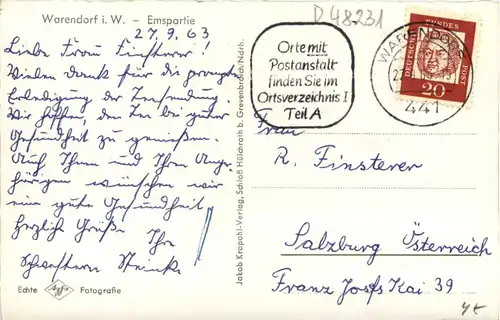 Warendorf i. W. - Emspartie
27. 9. 63
Liebe Frau Finsterer!
Vielen Dank für die prompte
Erledigung der Teesendung.
Wir hoffen, den Tee bei guter
Gesundheit zu genießen.
Auch Ihnen und Ihre Ange-
hörigen wünschen wir
eine gute Gesundheit!
Herzliche Grüße
Ihre
Schwestern
Echte Fotografie
Jakob Krapohl-Verlag, Schloß Hülchrath b. Grevenbroich/Ndrh.
D 48231
Orte mit
Postanstalt
finden Sie im
Ortsverzeichnis I
Teil A
WARENDORF
441
DEUTSCHE BUNDESPOST
20
Frau
R. Finsterer
Salzburg Österreich
Franz Josefs Kai 39